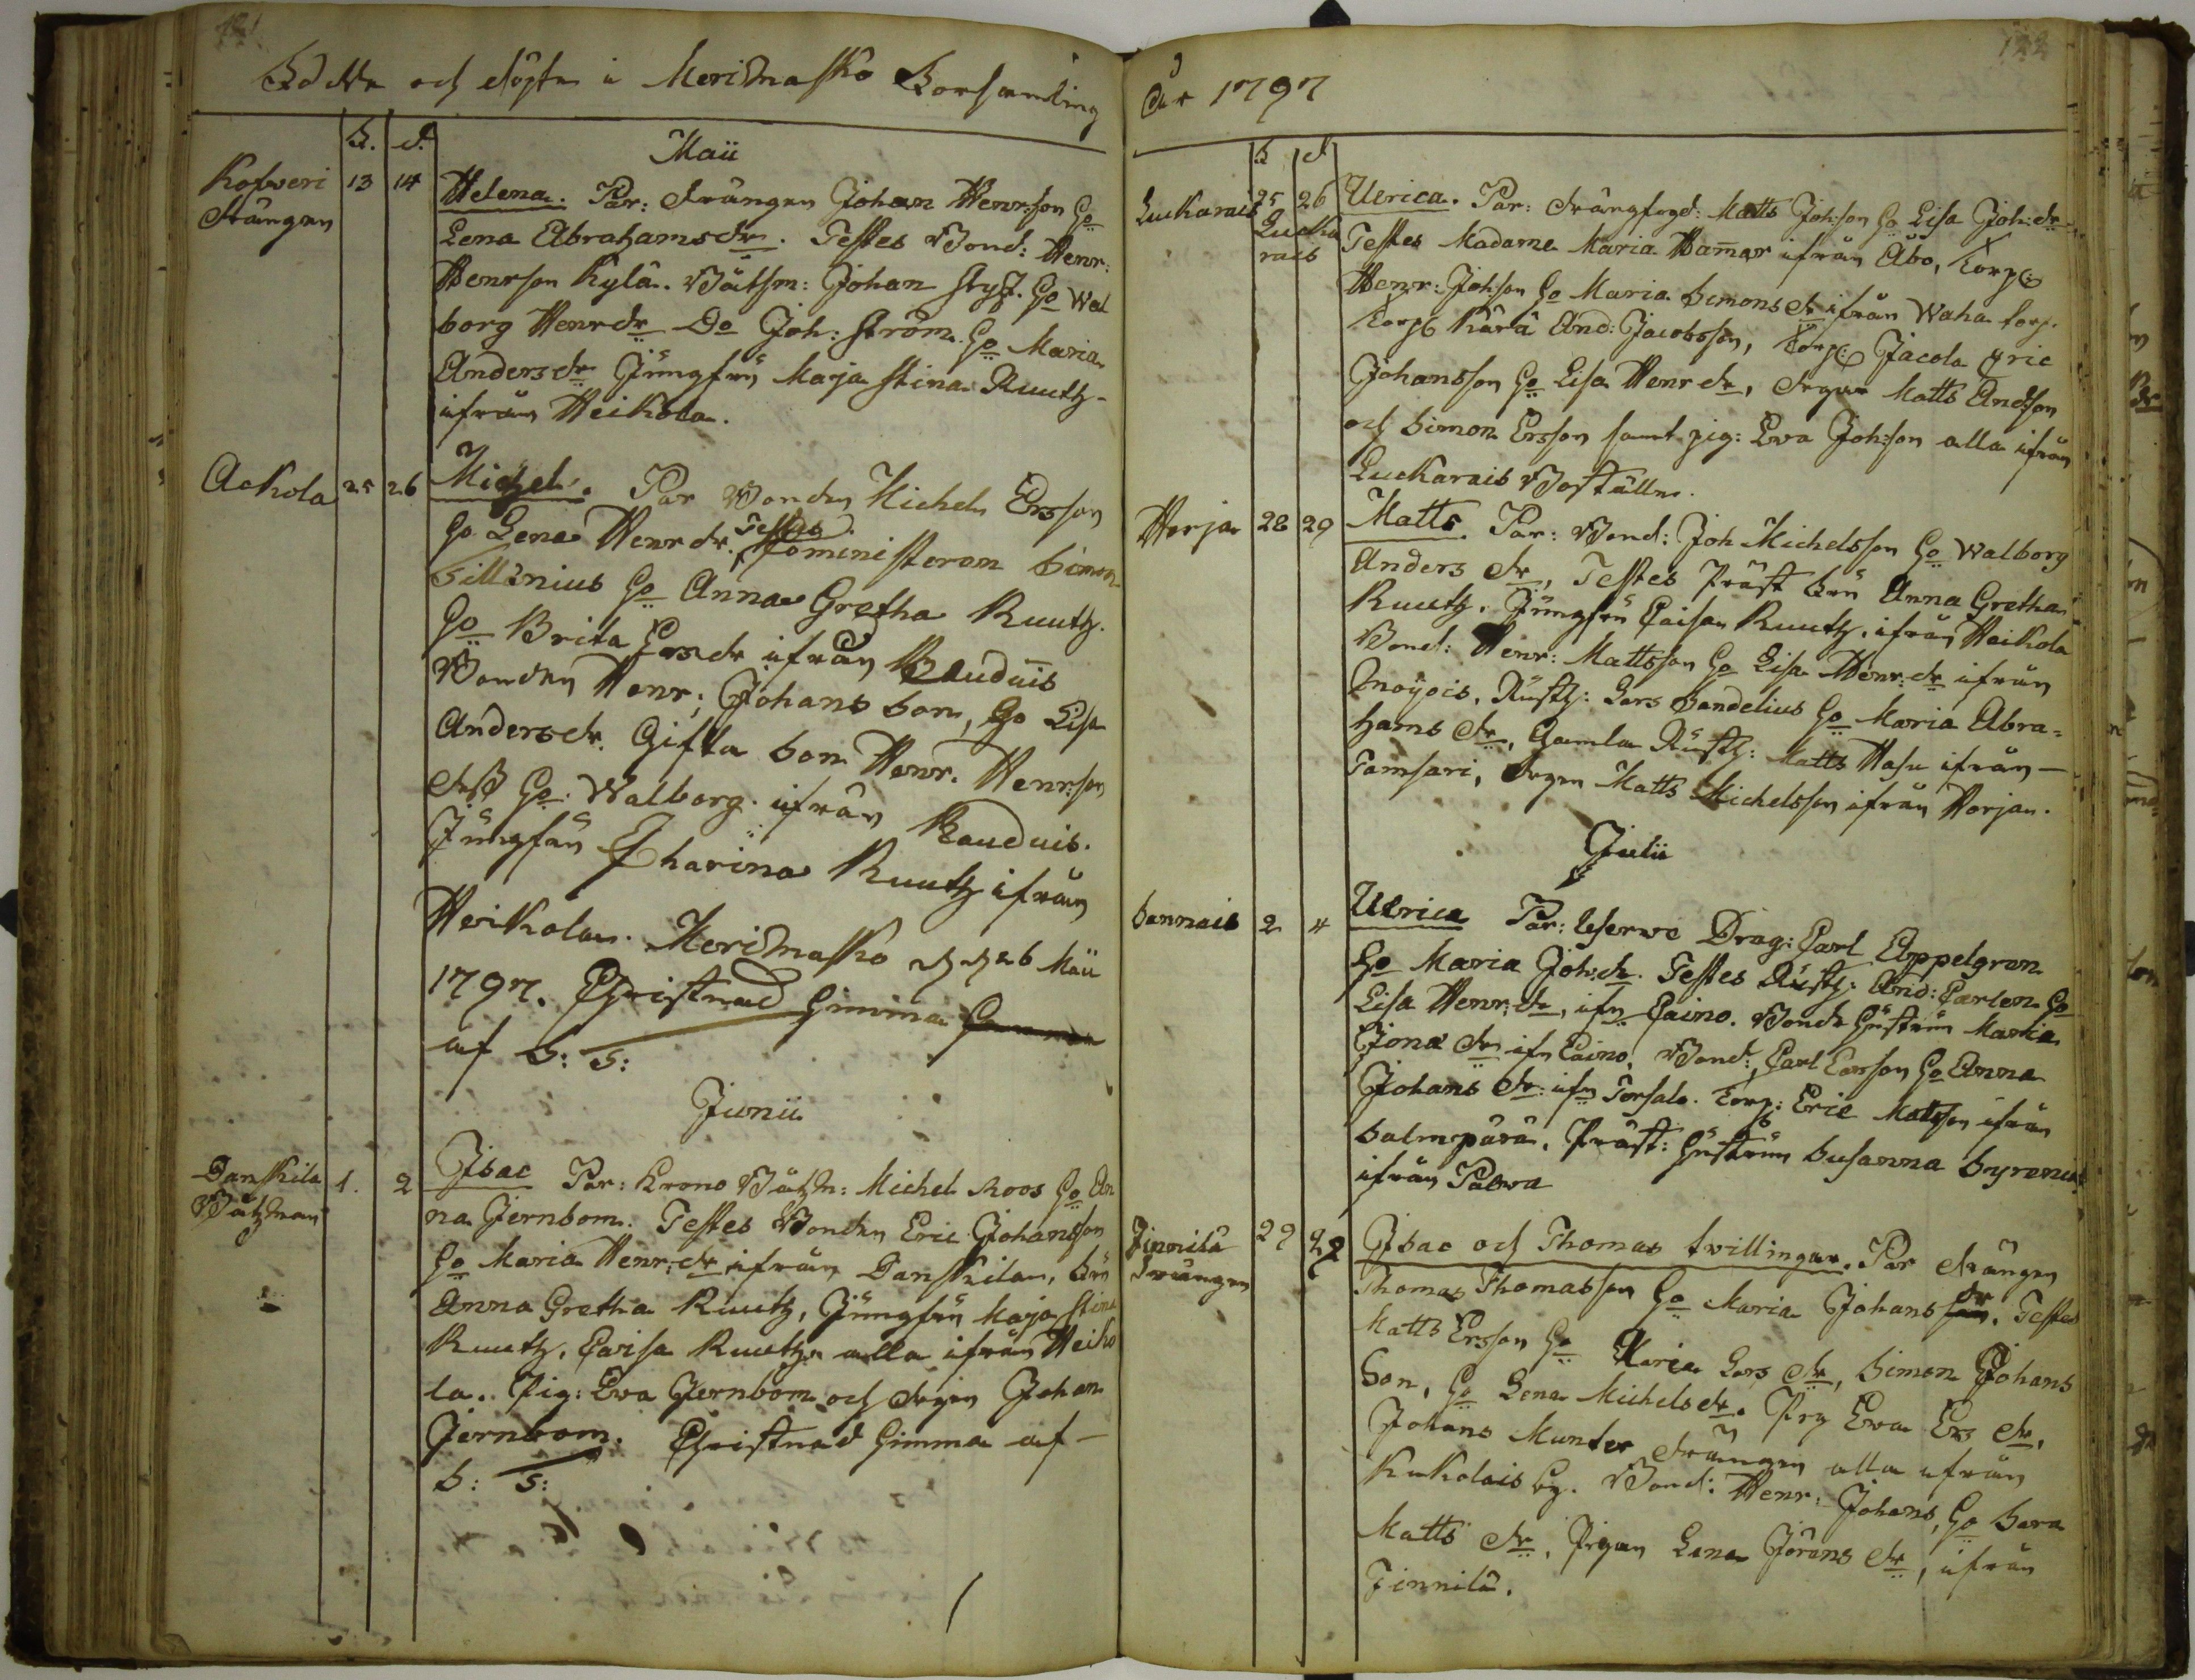 121
Födde och döpte i Merimasko Församling
F. d.
Maii
Kofveri 13 14 Helena. Par: drängen Johan Henr:son Ho
drängen Lena Abrahamsdr. Testes Bond: Henr:
Henrson Kylä. Båtsm: Johan Styf. Ho Wal
borg Henrdr Do Joh: Ström. Ho Maria
Andersdr Jungfru Maja Stina Ruuth
ifrån Heikola.
Ackola 25 26 Michel. Par Bonden Michel Ersson
Ho Lena Henrdr. Testes Comministeren Simon
Ho Anna Gretha Ruuth.
Ho Brita Ersdr ifrån Rauduis
Bonden Henr: Johans Son, Ho Lisa
Andersdr. Gifta Son Henr. Henrson
Ho Walborg. ifrån Rauduis.
Jungfrun Catharina Ruuth ifrån
Heikola. Merimasko d 26 Maii
1797. Christnad Hemma
af S: T:
Junii
Danskila 1. 2 Isac Par: Krono Båtzm: Michel Roos Ho An
Båtzman na Jernbom. Testes Bonden Eric Johansson
Ho Maria Henr:dr ifrån Danskila, Fru
Anna Gretha Ruuth, Jungfru Maja Stina
Ruuth, Caisa Ruuth alla ifrån Heiko
la. Pig: Eva Jernbom och drgn Johan
Jernbom. Christnad Hemma af
S: T:
122
År 1797
F d
Luckarais 25 26 Ulrica. Par: drängfogd: Matts Joh:son Ho Lisa Joh:dr
Lucka
rais
Testes Madame Maria Hamar ifrån Åbo, Torp:
Henr: Joh:son Ho Maria Simonsdr ifrån Waha torp.
Torp: Kärä And: Jacobsson, Torp: Jacola Eric
Johansson Ho Lisa Henrdr, drgar Matts Andson
och Simon Ersson samt pig: Eva Joh:son alla ifrån
Luckarais Boställe.
Horjan 28 29 Matts. Par: Bond: Joh Michelsson Ho Walborg
Anders dr, Testes Präst Fru Anna Gretha
Ruuth. Jungfru Caisa Ruuth. ifrån Heikola
Bond: Henr: Mattsson Ho Lisa Henr:dr ifrån
Rusth: Lars Sandelius Ho Maria Abra=
hams dr, Gamla Rusth: Matts Hasu ifrån
Tamsari, drgen Matts Michelsson ifrån Horjan.
Julii
Sannais 2 4 Ulrica Par: Reserve Drag: Carl Appelgren
Ho Maria Joh:dr. Testes Rusth: And: Carlen Ho
Lisa Henr:dr, ifn Caino. Bonde Hustrun Maria
Jona dr ifn Caino, Bond: Carl Carson Ho Anna
Johans dr: ifn Torsalo. Torp: Eric Mattson ifrån
Salmepärä. Präst: Hustrun Susanna
ifrån Palva
Finnilä 27 28 Isac och Thomas tvillingar. Par drängen
Drängen Thomas Thomasson Ho Maria Johans dr. Testes
Matts Ersson Ho Maria Lars dr, Simon Johans
Son, Ho Lena Michelsdr. Pig Ewa Ers dr,
Johans Munter drängen alla ifrån
Kukolais by. Bond: Henr: Johans, Ho Sara
Matts dr, Pigan Lena Jörans dr, ifrån
Finnilä.